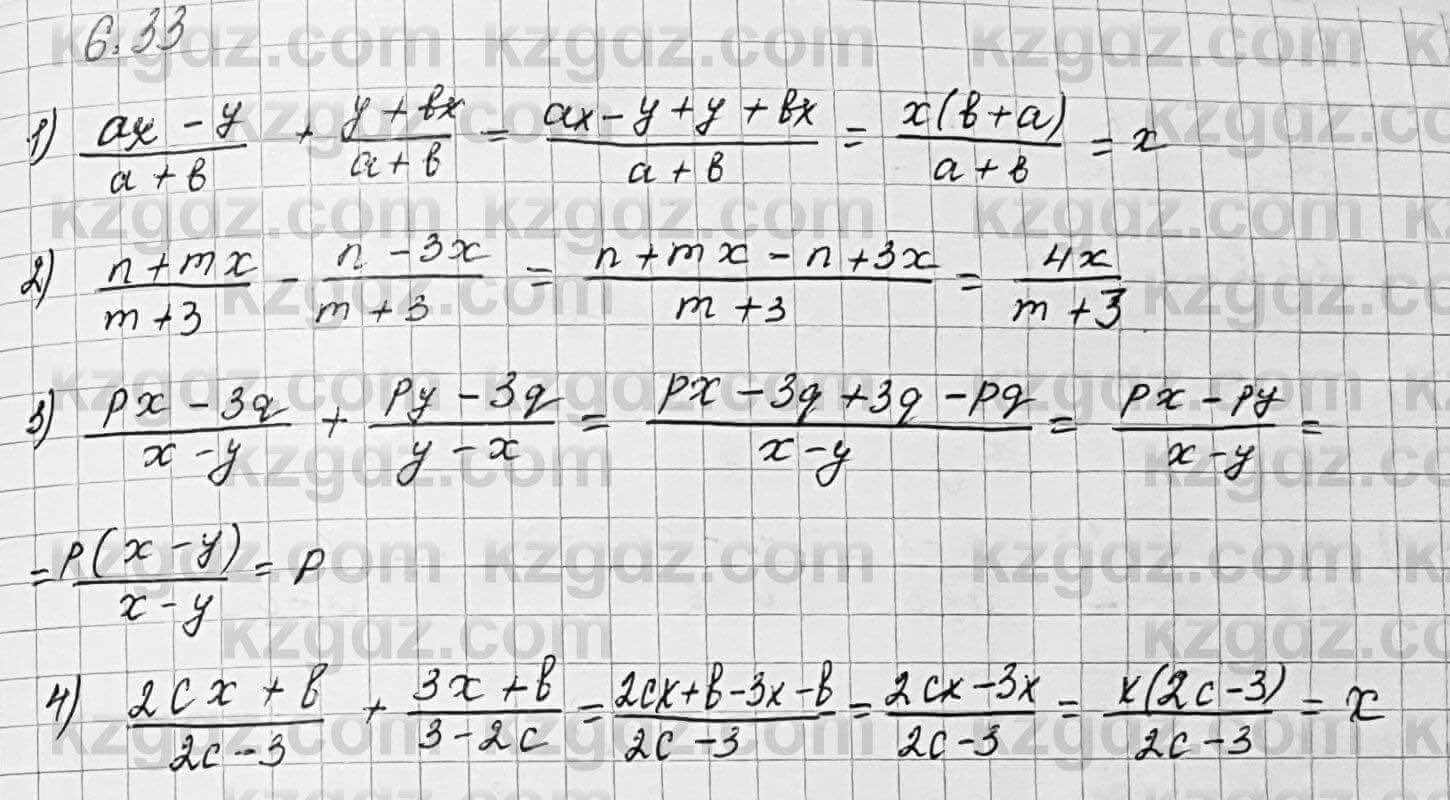 6.33
1) (ax - y)/(a + b) + (y + bx)/(a + b) = (ax - y + y + bx)/(a + b) = x(b + a)/(a + b) = x
2) (n + mx)/(m + 3) - (n - 3x)/(m + 3) = (n + mx - n + 3x)/(m + 3) = 4x/(m + 3)
3) (px - 3q)/(x - y) + (py - 3q)/(y - x) = (px - 3q + 3q - pq)/(x - y) = (px - py)/(x - y) =
= p(x - y)/(x - y) = p
4) (2cx + b)/(2c - 3) + (3x + b)/(3 - 2c) = (2cx + b - 3x - b)/(2c - 3) = (2cx - 3x)/(2c - 3) = x(2c - 3)/(2c - 3) = x
kzgdz.com